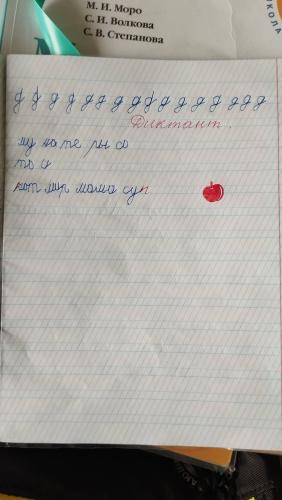 М. И. Моро
С. И. Волкова
С. В. Степанова
ШКОЛА
д д д д д д д д д д д д д д д д д
Диктант.
му ма те ры со
то
кот мир мама суп